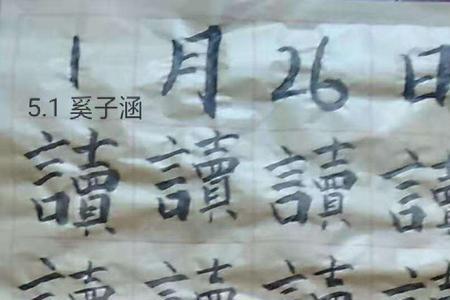 1月26日
5.1 奚子涵
讀讀讀讀
讀讀讀讀